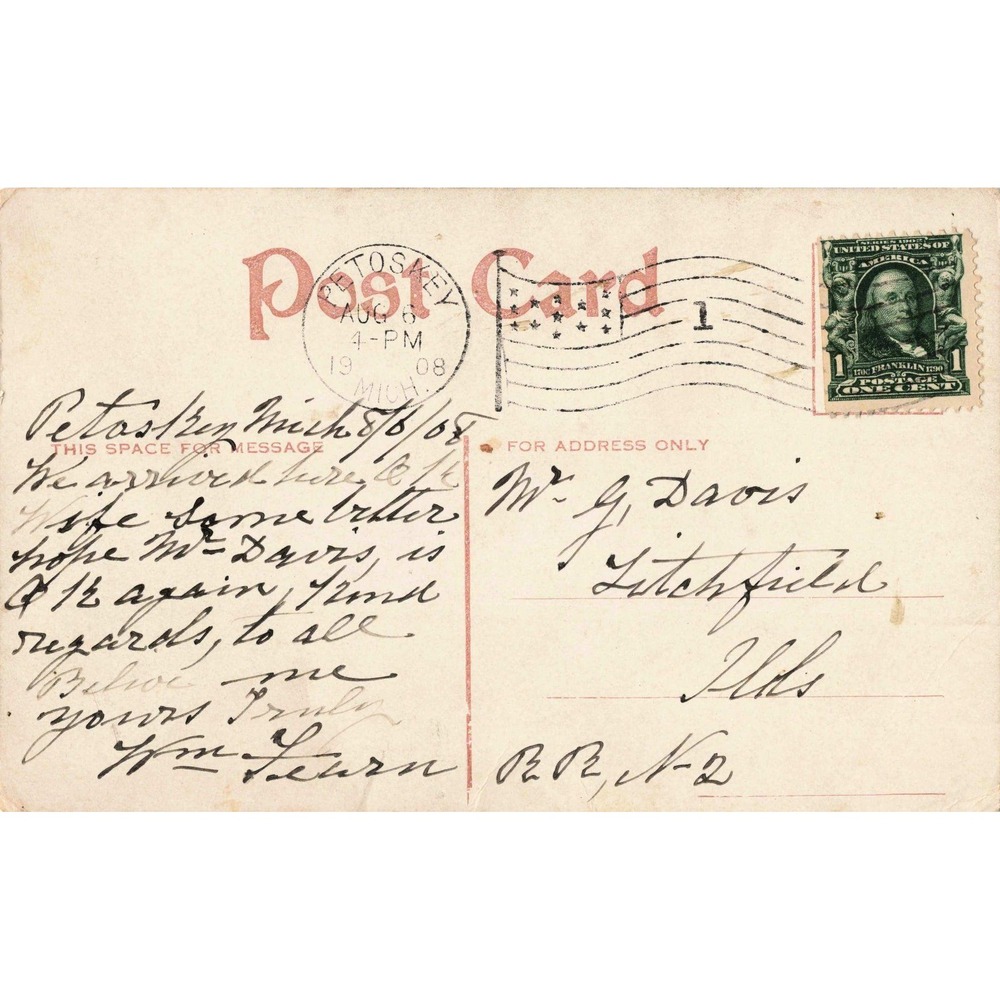 Post Card
PETOSKEY
AUG 6
4-PM
19 08
MICH.
1
SERIES 1902
UNITED STATES OF
AMERICA
1 1
1706 FRANKLIN 1790
POSTAGE
ONE CENT
THIS SPACE FOR MESSAGE
Petoskey Mich 8/6/08
We arrived here O K
Wife some better
hope Mr Davis, is
O K again, Kind
regards, to all
Belive me
yours Truly
Wm Fearn
FOR ADDRESS ONLY
Mr G, Davis
Litchfield
Ills
R R, N-2